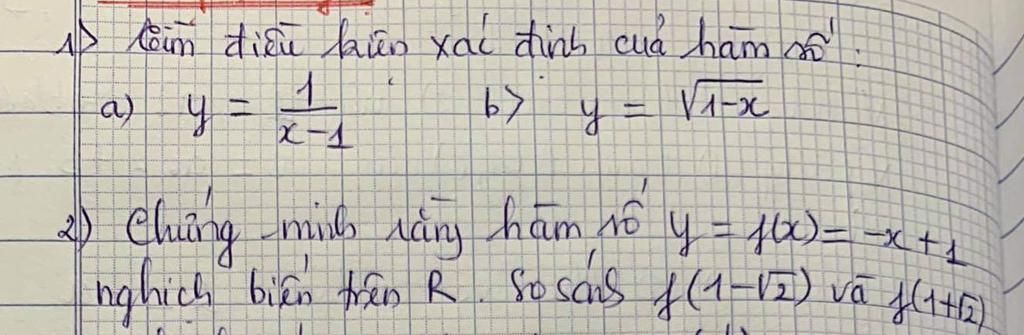 1) Tìm điều kiện xác định của hàm số :
a) y = 1/(x-1) b) y = √(1-x)
2) Chứng minh rằng hàm số y = f(x) = -x + 1
nghịch biến trên R. So sánh f(1-√2) và f(1+√2)